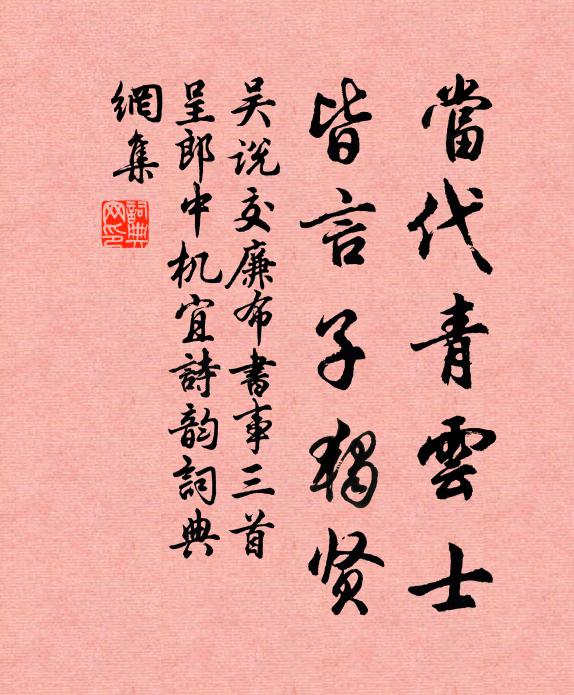 當代青雲士
皆言子獨贤
吴说交廉布書事三首
呈郎中机宜詩韵詞典
網集
詞典網印